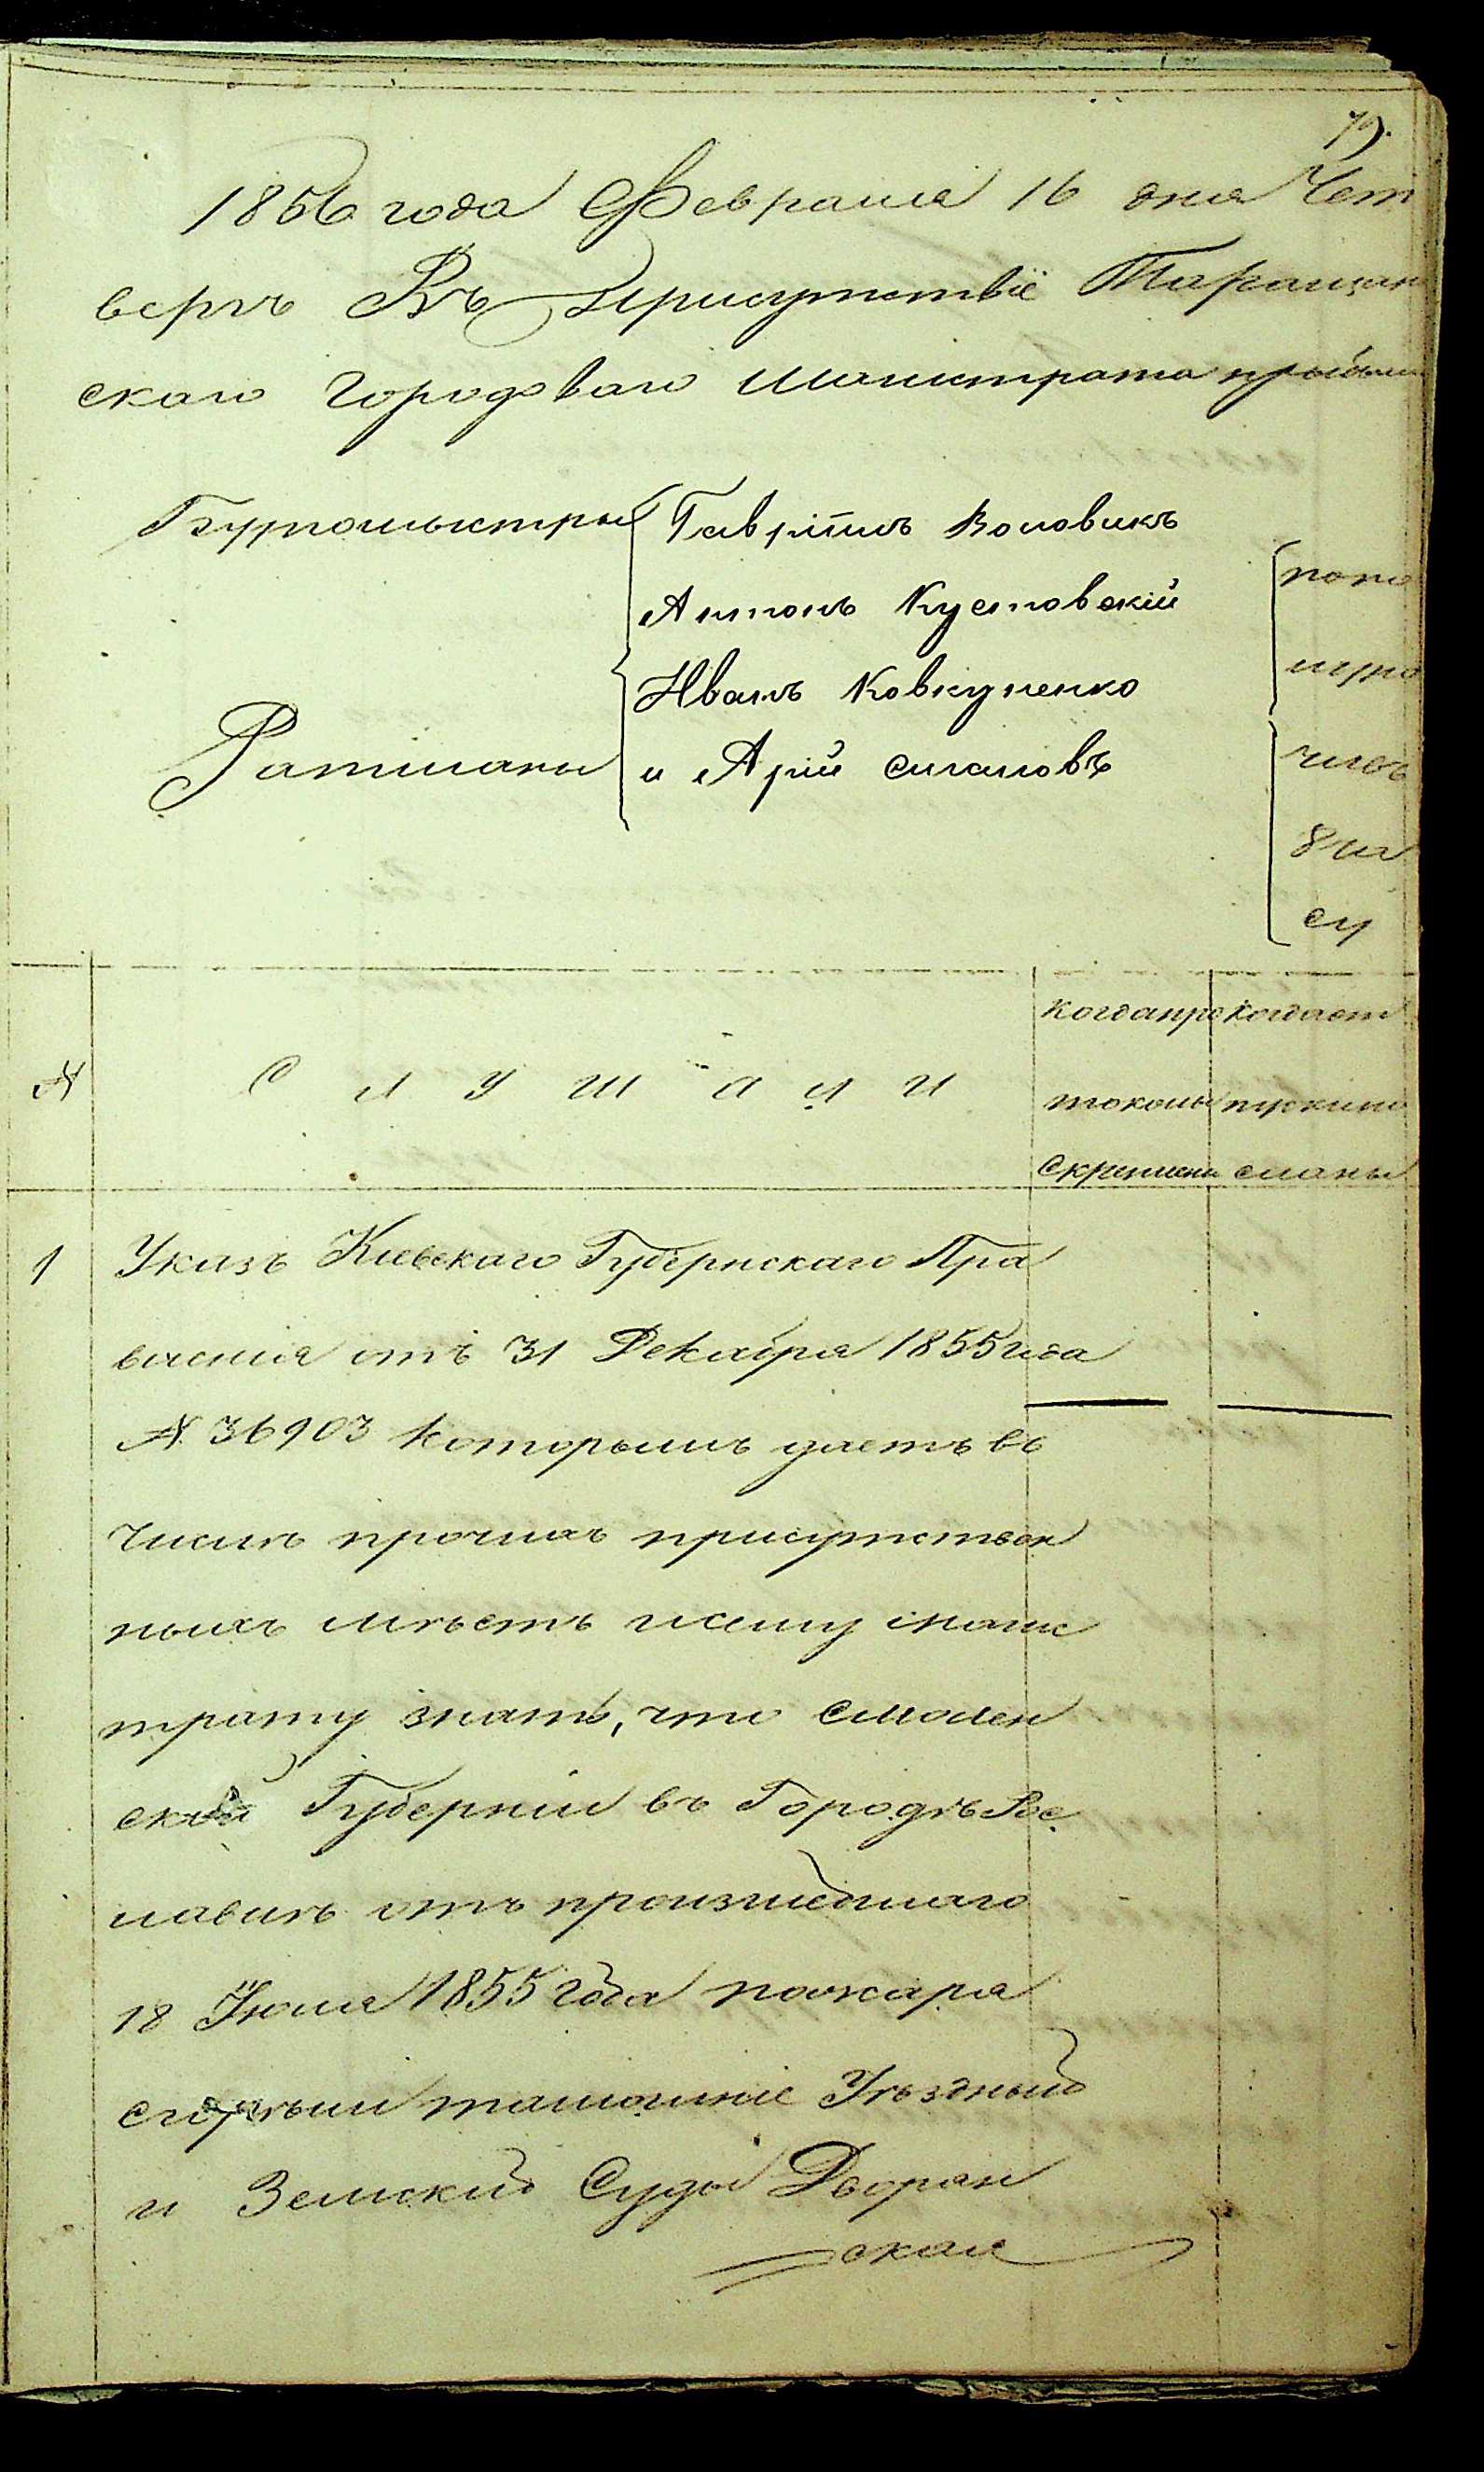 79.
1856 года Февраля 16 дня Чет
верг Въ Присутствіе Таращан
скаго Городоваго Магистрата прибыли
Бургомистры Гавріилъ Воловикъ
Антонъ Кустовскій
Иванъ Ковкуненко
Ратманы и Арій
попо
числъ
су
№ Слушали
когда про когда от
токолы пускано
скреплены сланы
1 Указъ Кіевскаго Губернскаго Пра
вленія отъ 31 Декабря 1855 года
№ 36903 которымъ даетъ въ
числѣ прочихъ присутствен
ныхъ мѣстъ и сему магис
трату знать, что Смолен
ской Губерніи въ Городѣ Рос
лавлѣ отъ произшедшаго
18 Іюля 1855 года пожара
сгорѣли тамошніе Уѣздный
и Земскій Суды Дворян
ская